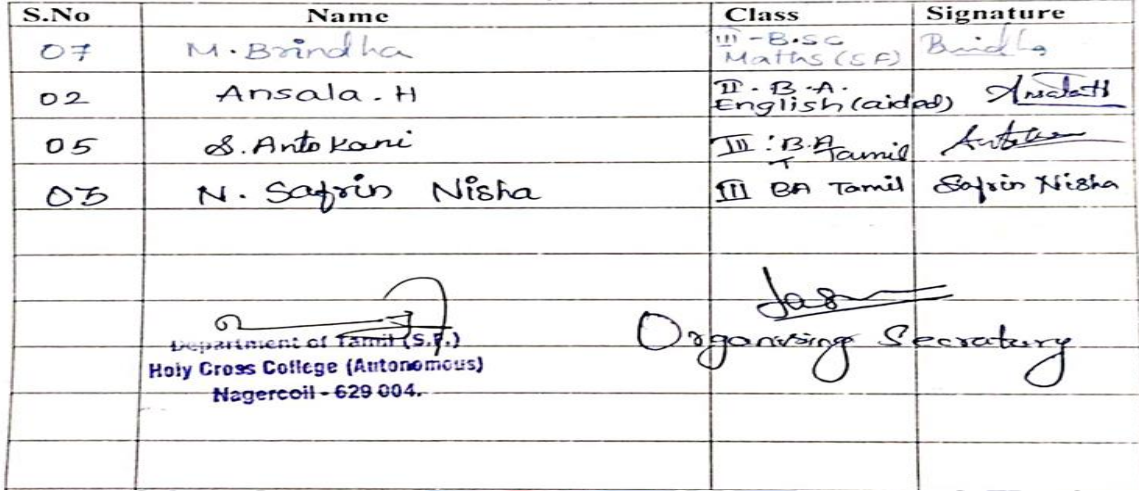 S.No Name Class Signature
07 M. Brindha III - B.sc Maths (SF) Brindha
02 Ansala. H II. B.A. English (aided)
05 S. Anto Kani III : B.A Tamil
03 N. Safrin Nisha III BA Tamil Safrin Nisha
Department of Tamil (S.F.)
Holy Cross College (Autonomous)
Nagercoil - 629 004.
Organising Secratury